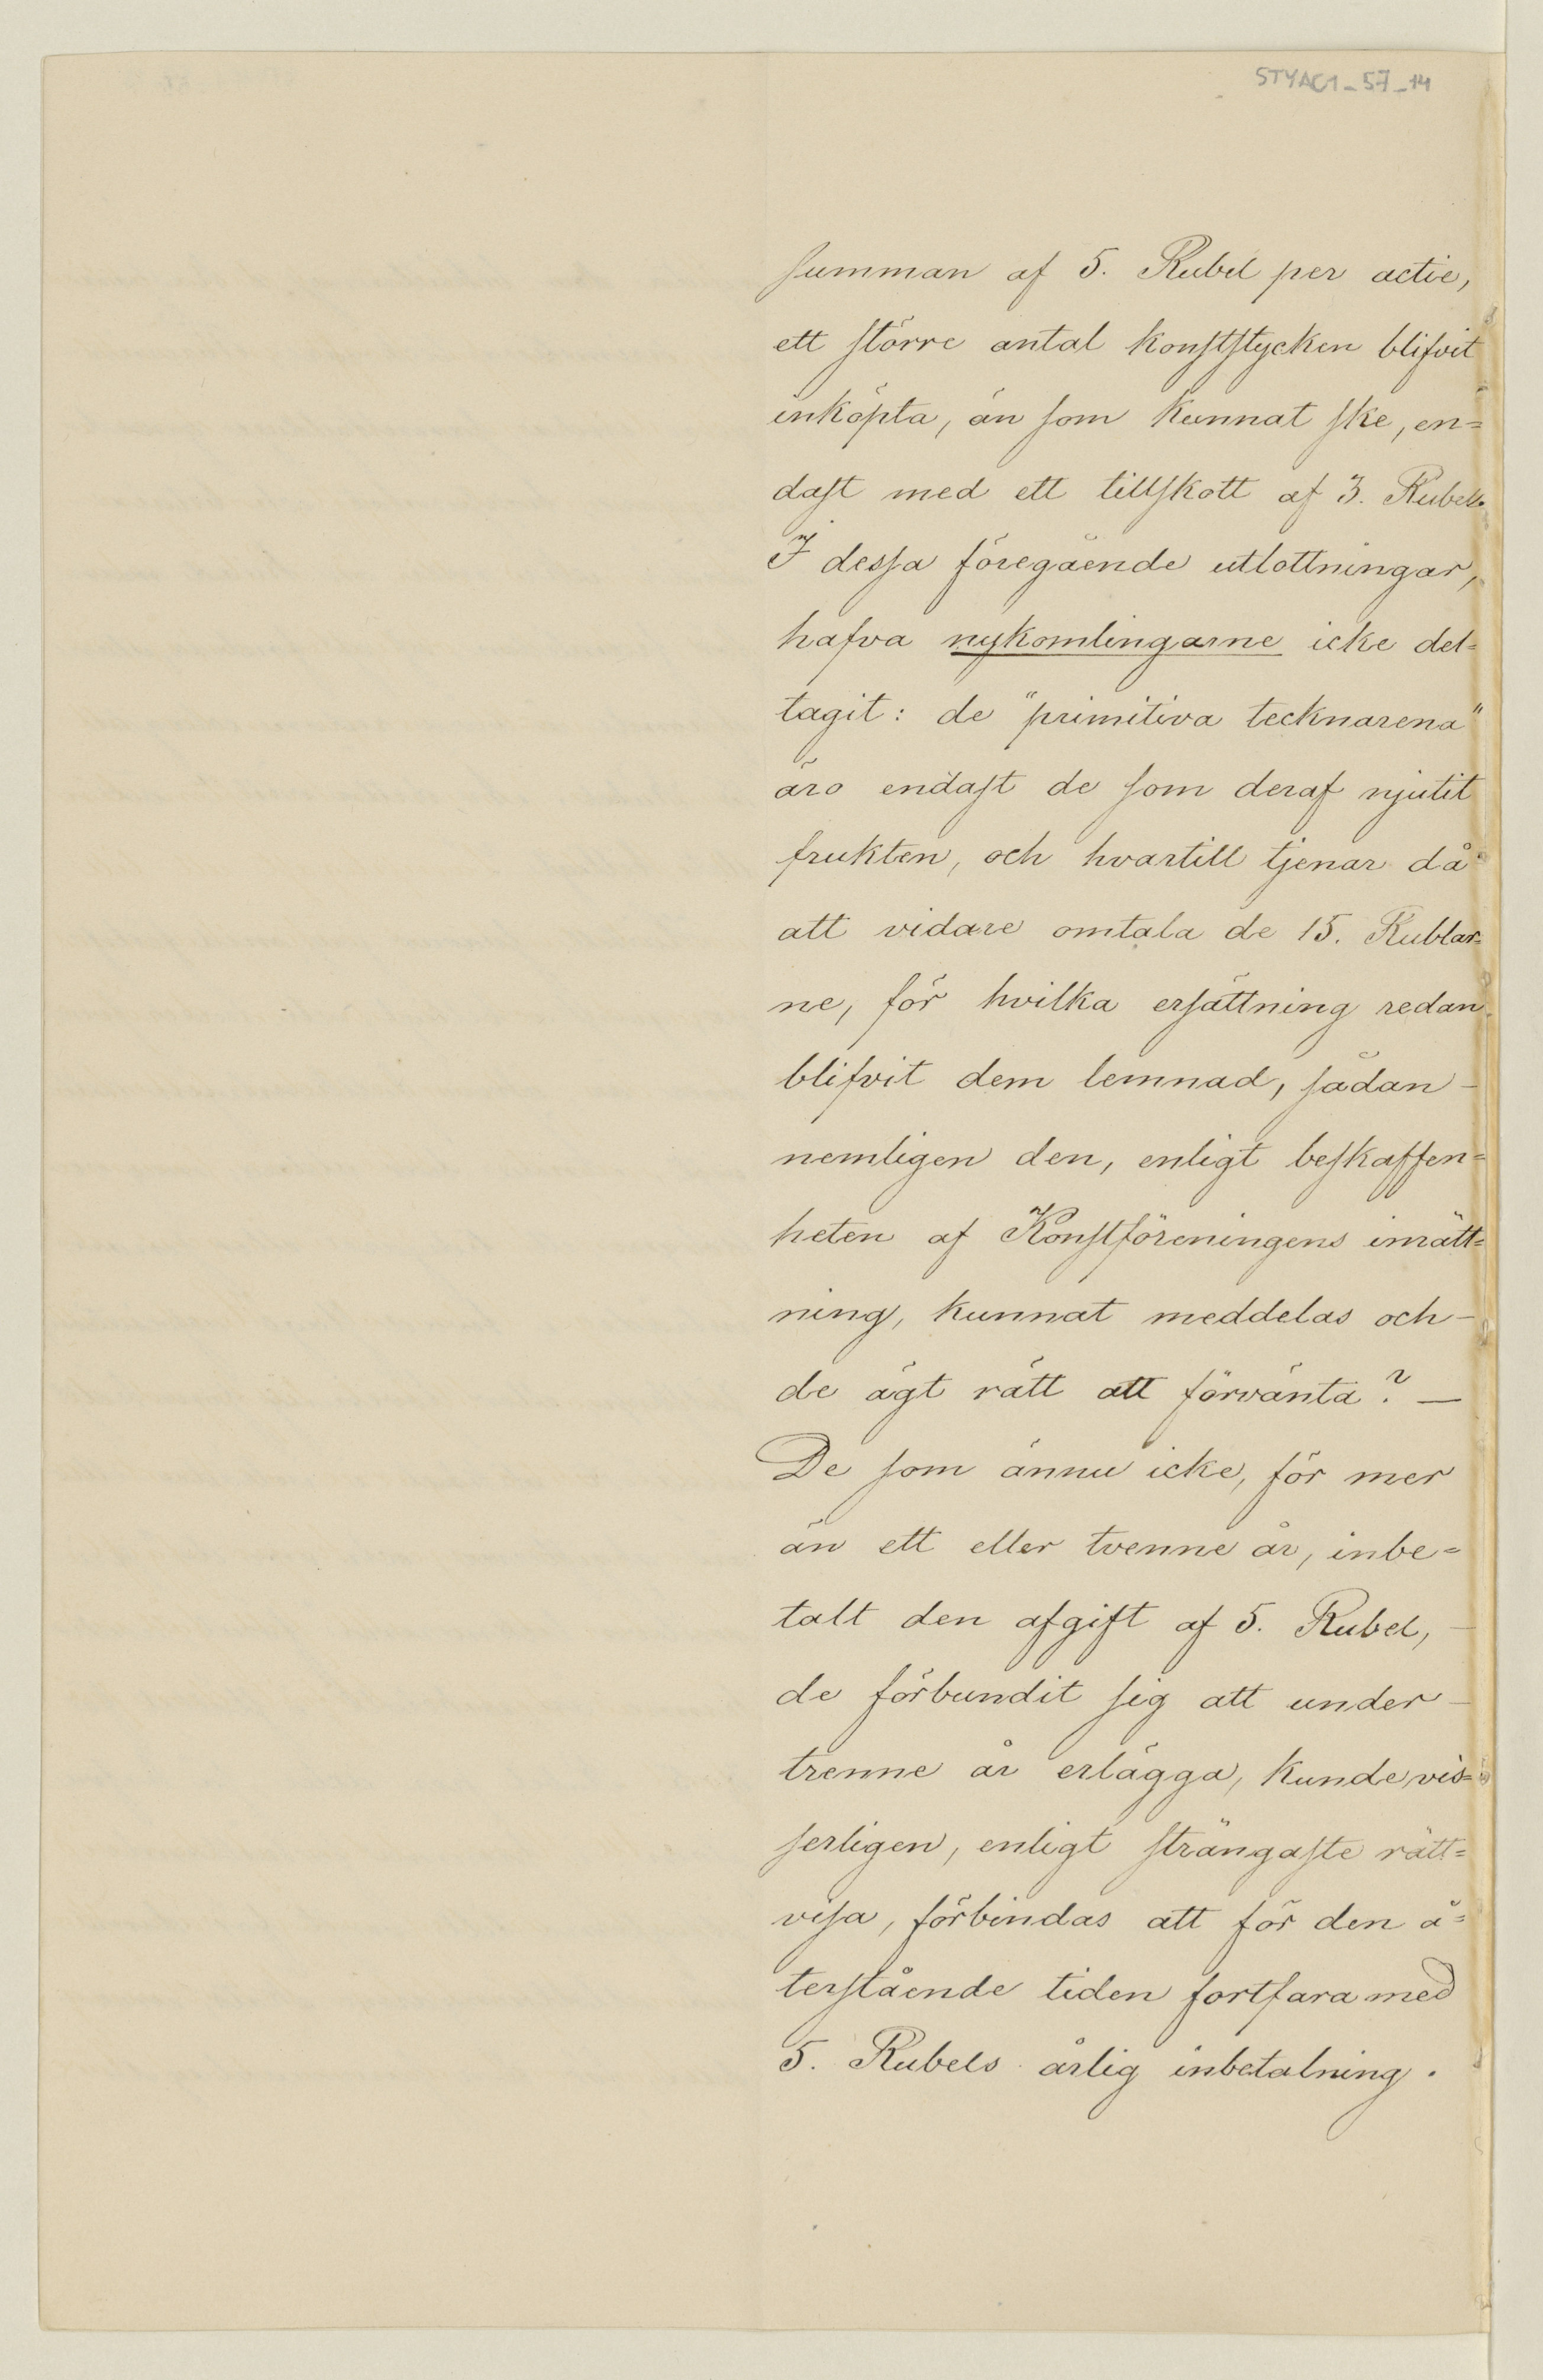 STYAC1_57_14
summan af 5. Rubel per actie,
ett större antal konststycken blifvit
inköpta, än som kunnat ske, en=
dast med ett tillskott af 3. Rubel.
I dessa föregående utlottningar,
hafva nykomlingarne icke del=
tagit: de "primitiva tecknarena"
äro endast de som deraf njutit
frukten, och hvartill tjenar då
att vidare omtala de 15. Rublar=
ne, för hvilka ersättning redan
blifvit dem lemnad, sådan –
nemligen den, enligt beskaffen=
heten af Konstföreningens inrätt=
ning, kunnat meddelas och –
de ägt rätt att förvänta? –
De som ännu icke, för mer
än ett eller tvenne år, inbe=
talt den afgift af 5. Rubel, –
de förbundit sig att under –
trenne år erlägga, kunde vis=
serligen, enligt strängaste rätt=
visa, förbindas att för den å=
terstående tiden fortfara med
5. Rubels årlig inbetalning.